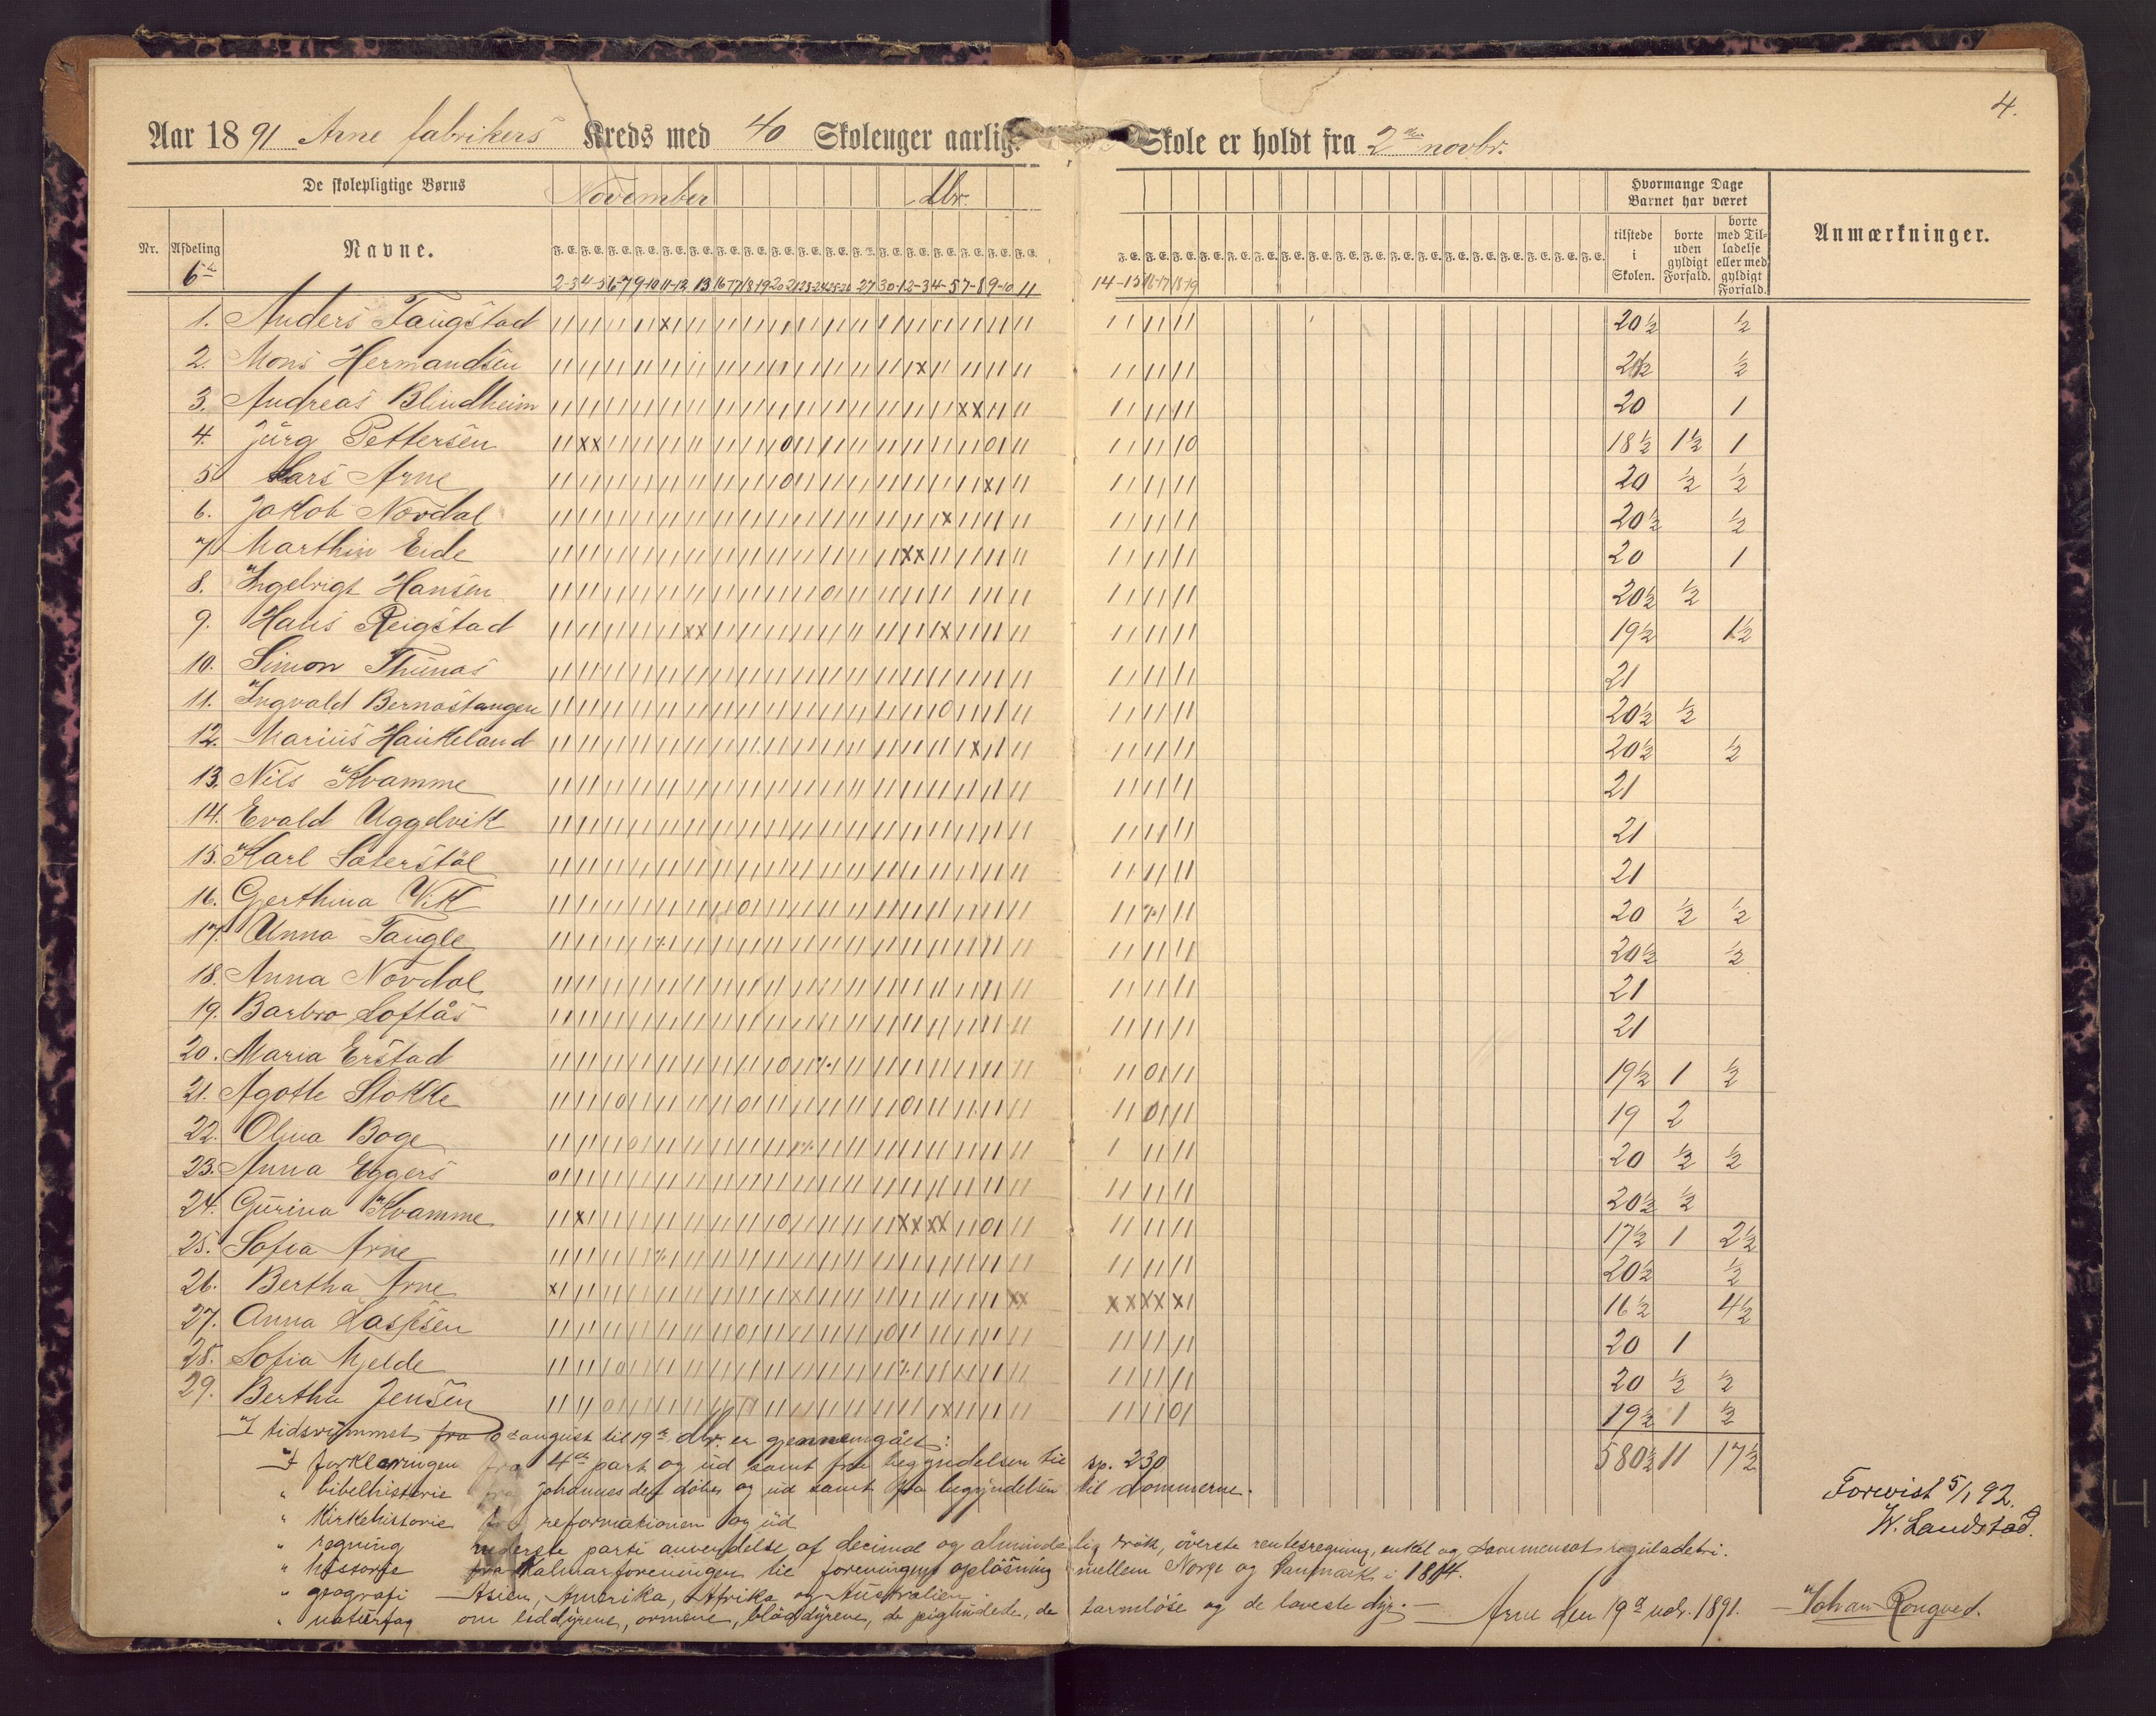 4.
Aar 1891 Arne fabrikers Kreds med 40 Skoleuger aarlig. Skole er holdt fra 2den novbr.
De skolepligtige Børns
November dbr.
Hvormange Dage Barnet har været
Nr. Afdeling Navne. tilstede i Skolen. borte uden gyldigt Forfald. borte med Tilladelse eller med gyldigt Forfald. Anmærkninger.
6te
1. Anders Taugstad 20½ ½
2. Mons Hermandsen 20½ ½
3. Andreas Blindheim 20 1
4. Jürg Pettersen 18½ 1½ 1
5. Lars Arne 20 ½ ½
6. Jakob Novdal 20½ ½
7. Marthin Eide 20 1
8. Ingebrigt Hansen 20½ ½
9. Hans Reigstad 19½ 1½
10. Simon Thunas 21
11. Ingvald Bernastangen 20½ ½
12. Marius Haukeland 20½ ½
13. Nils Kvamme 21
14. Evald Uggdvik 21
15. Karl Säterstöl 21
16. Gjerthina Vik 20 ½ ½
17. Anna Taugle 20½ ½
18. Anna Novdal 21
19. Barbro Loftås 21
20. Maria Erstad 19½ 1 ½
21. Agothe Stokke 19 2
22. Olina Boge 20 ½ ½
23. Anna Eggers 20½ ½
24. Gurina Kvamme 17½ 1 2½
25. Sofia Arne 20½ ½
26. Bertha Arne 16½ 4½
27. Anna Lassen 20 1
28. Sofia Mjelde 20 ½ ½
29. Bertha Jensen 19½ 1 ½
580½ 11 17½
I tidsrummet fra august til 19de dbr. er gjennemgået:
I forklaringen fra 4de part og ud samt fra begyndelsen til sp. 230
" bibelhistorie fra Johannes den döber og ud samt fra begyndelsen til dommerne.
" Kirkehistorie fra reformationen og ud
" regning nederste parti anvendelse af decimal og almindelig brök, överste rentesregning, enkel og sammensat reguladetri.
" historie fra Kalmarforeningen til foreningens oplösning mellem Norge og Danmark i 1814.
" geografi – Asien, Amerika, Afrika og Australien
" naturfag om leddyrene, ormene, blöddyrene, de pighudede, de tarmlöse og de laveste dyr. –
Arne den 19de 1891. – Johan Rongved.
Forevist 5/1 92.
W. Landstad.